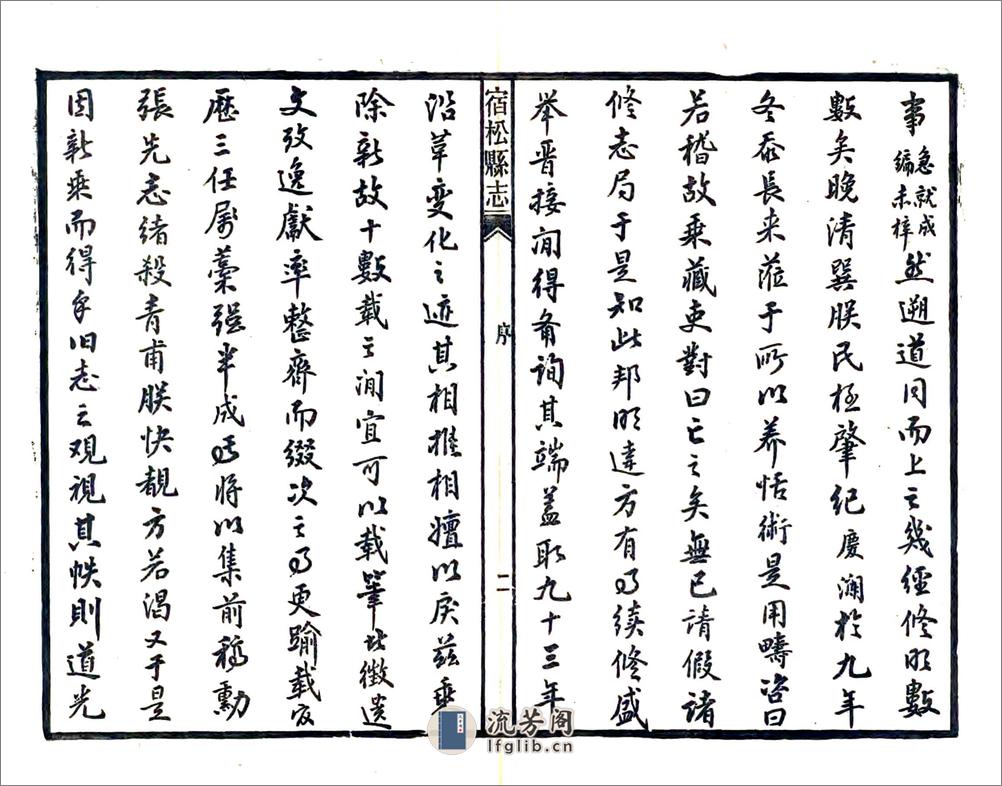 事 急就成
編未梓 然遡道同而上之幾經修明數
數矣晚清巽朕民極肇紀慶瀾於九年
冬忝長来蒞于所以养恬術是用疇咨曰
若稽故乘藏吏對曰亡之矣無已請假諸
修志局于是知此邦明達方有事續修盛
举晋接间得备询其端盖取九十三年
宿松縣志
序
二
沿革变化之迹其相推相嬗以戾兹乘
除新故十數载之间宜可以载筆徵遗
文攷逸獻率整齊而綴次之事更踰载
歷三任属藁强半成焉将以集前稿勳
張先志緒殺青甫朕快覩方若渴又于是
因新乘而得旧志之观視其帙則道光
流芳阁
lfglib.cn